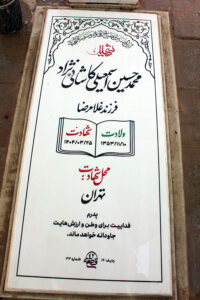 شهید
محمدحسین اسمعیلی کاشانی نژاد
فرزند غلامرضا
ولادت
شهادت
۱۳۵۳/۱۱/۱۰
۱۴۰۴/۰۳/۲۵
محل شهادت:
تهران
پدرم
فداییت برای وطن و ارزش‌هایت
جاودانه خواهد ماند.
ردیف ۱۴
شماره